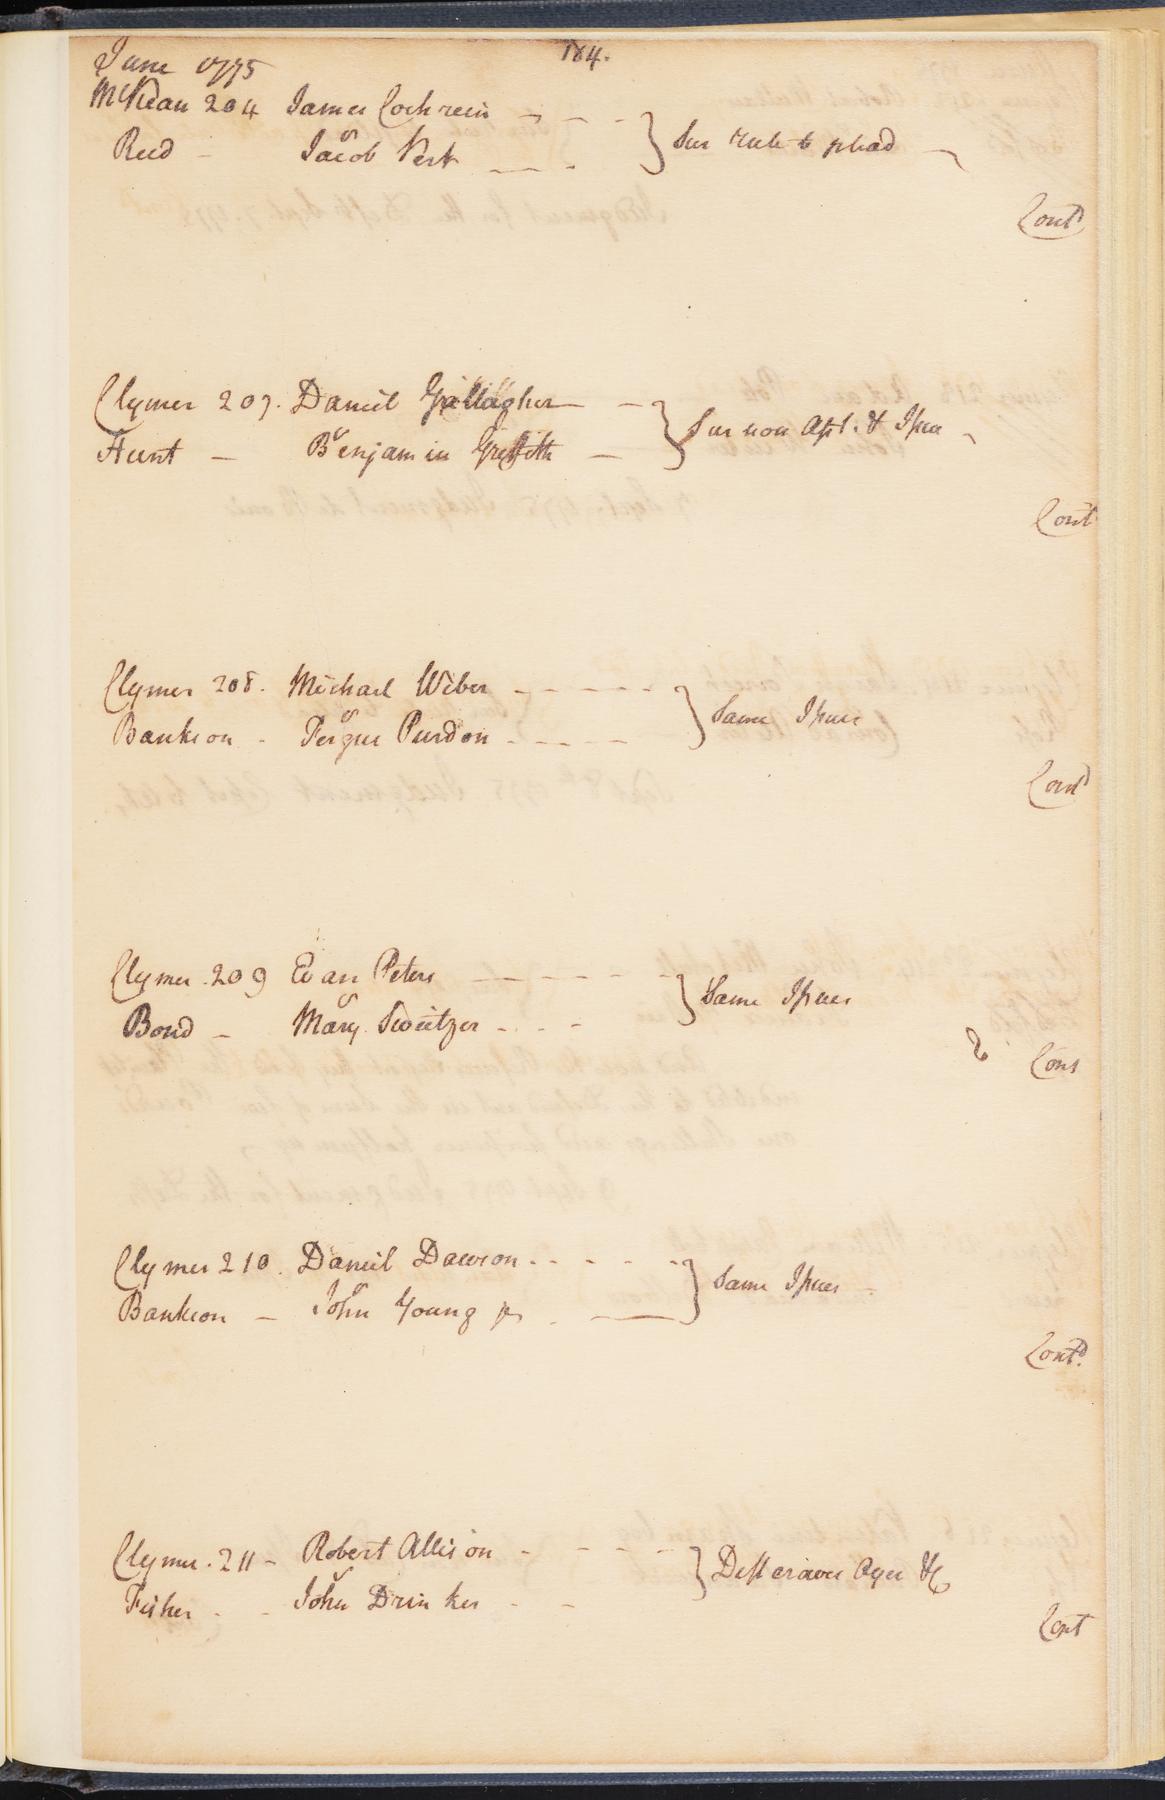 184.
June 1775
McKean 204 James Cochrein
vs
Reed - Jacob Vert } Sur rule to plead
Cont
Clymer 207. Daniel Gallagher
vs
Hunt - Benjamin Griffith } Sur non Aspt. & Issue
Cont
Clymer 208. Michael Weber
vs
Bankson - Fergus Purdon } Same Issues
Cont
Clymer 209 Evan Peters
vs
Bond - Mary Sweitzer } Same Issues
Cons
Clymer 210. Daniel Dawson
vs
Bankson - John Young jr } Same Issues
Contd.
Clymer 211 - Robert Allison
vs
Fisher - John Drinker } Deft craves Oyer &c
Cont